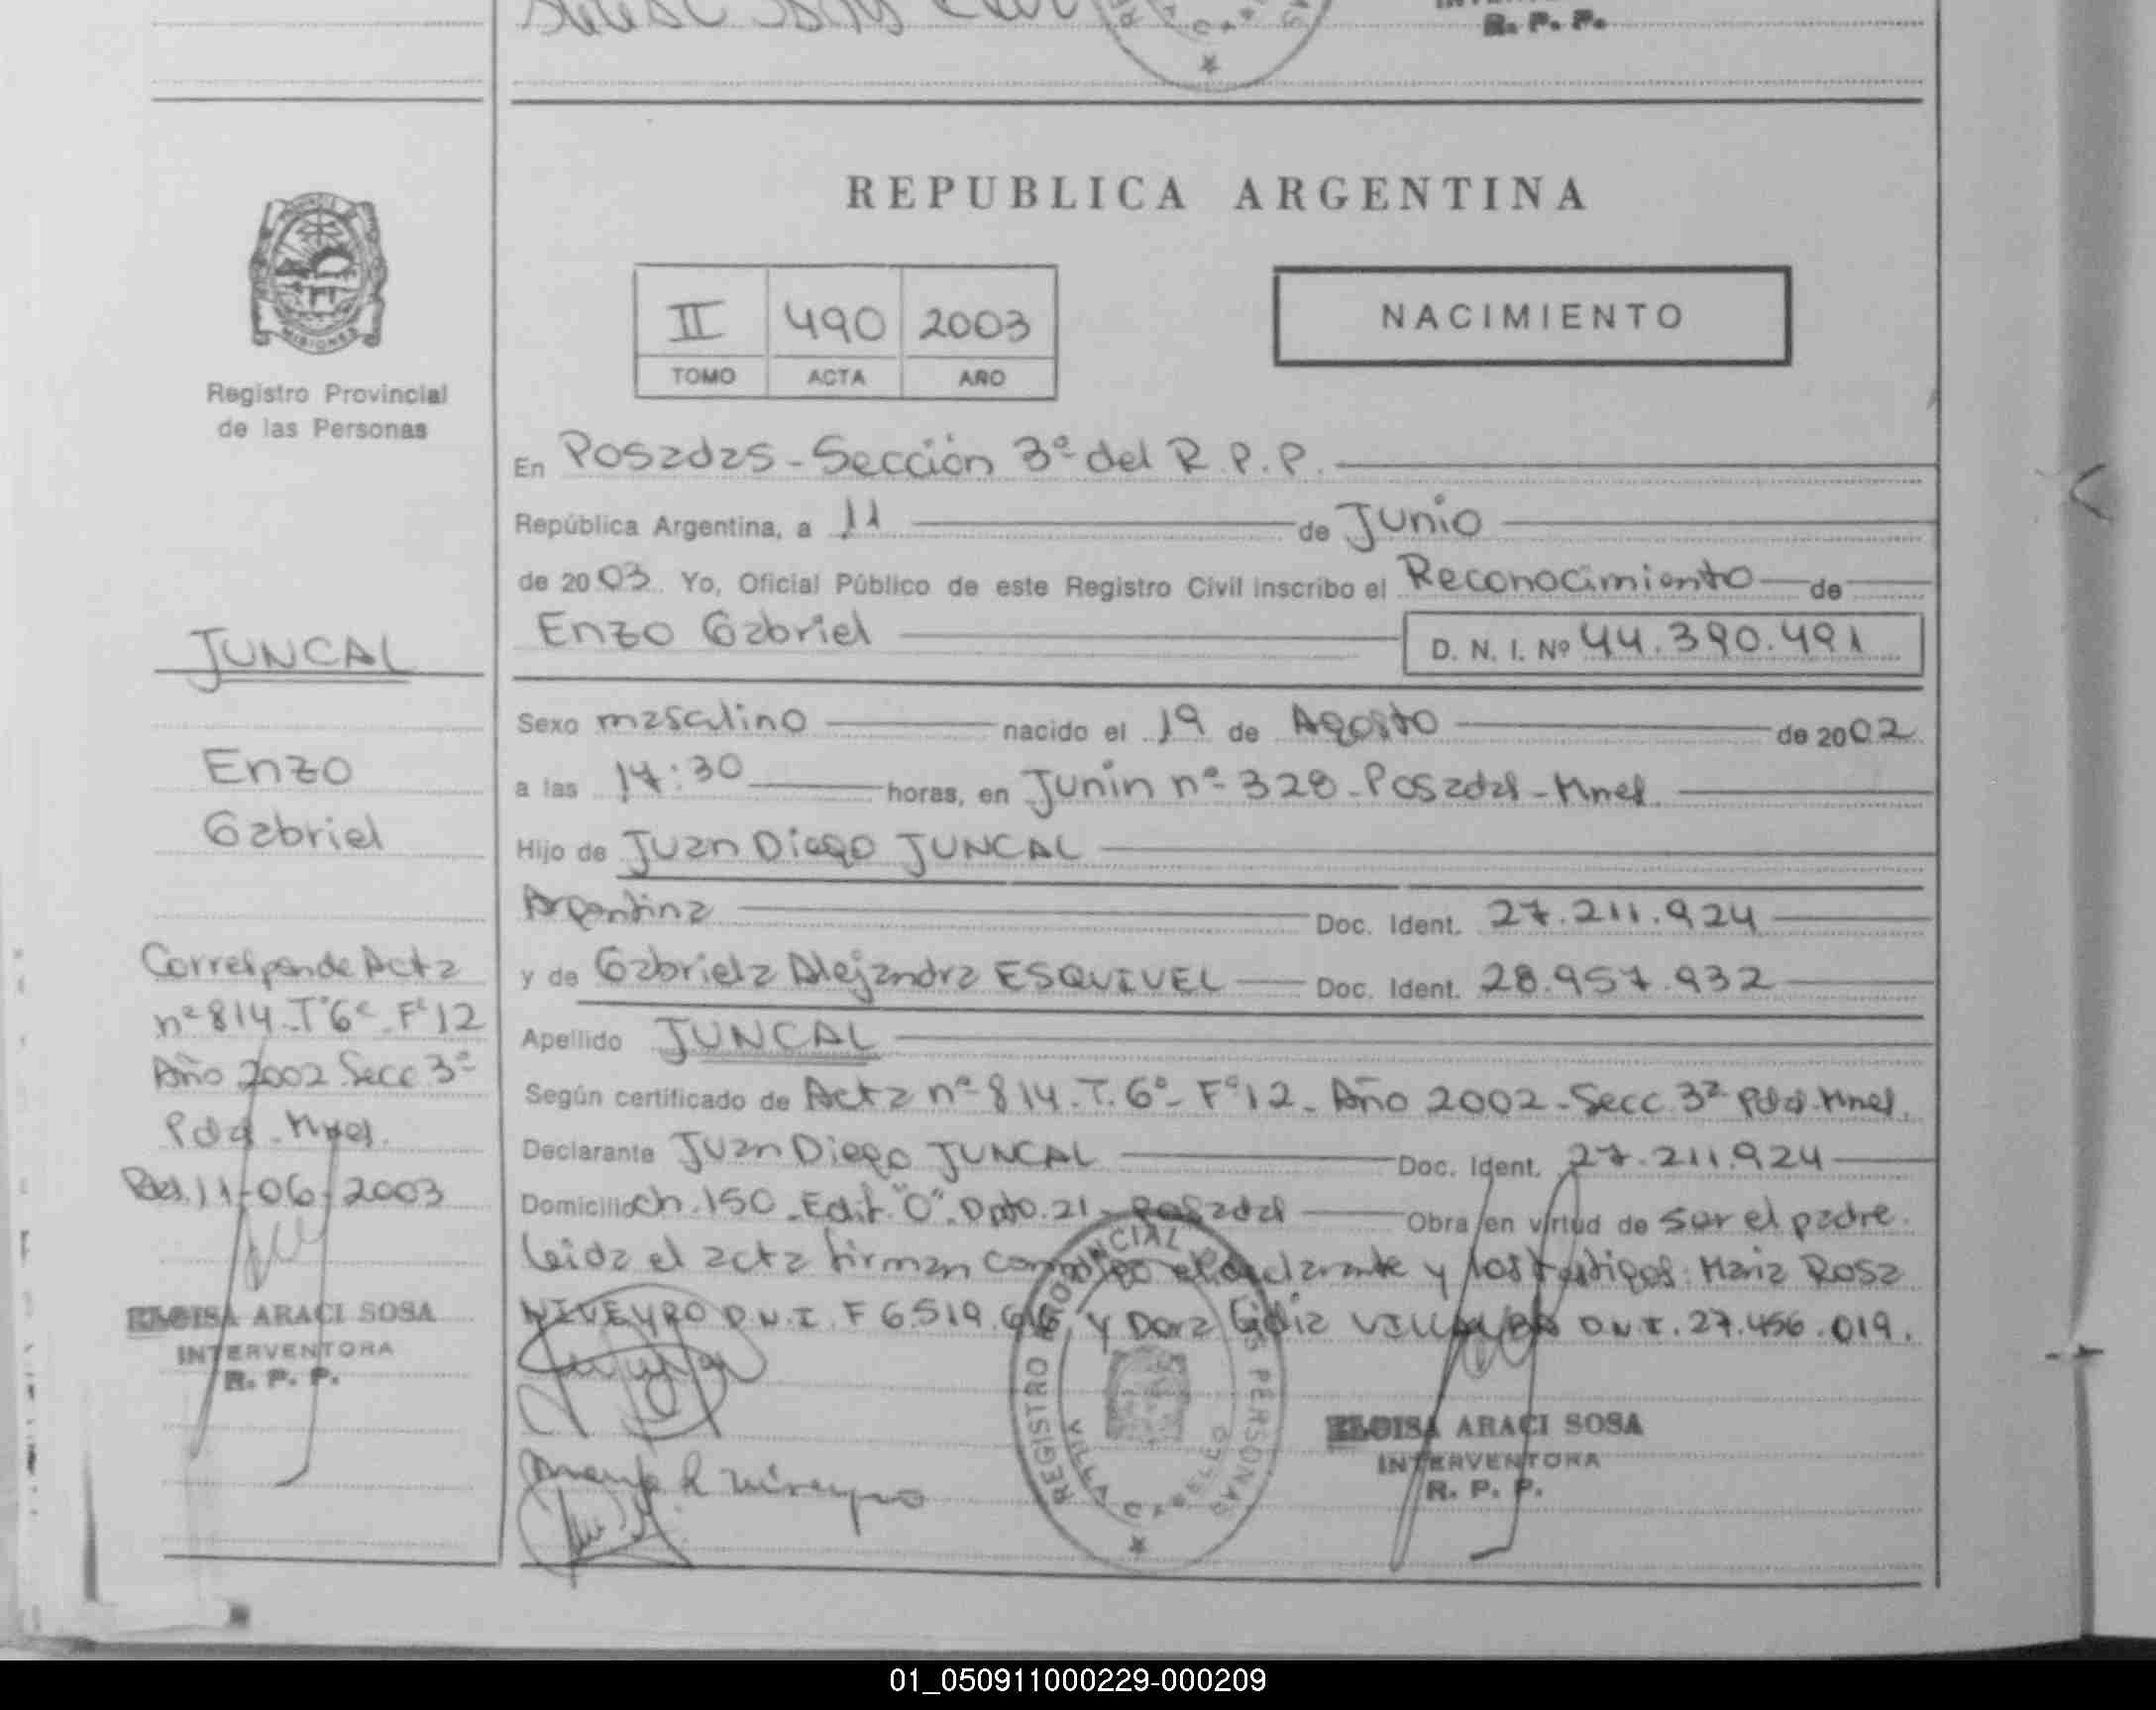 R. P. P.
MISIONES
Registro Provincial
de las Personas
JUNCAL
Enzo
Gabriel
Corresponde Acta
nº 814 - Tº 6º - Fº 12
Año 2002 Secc 3ª
Pdas. Mnes.
Pdas. 11-06-2003
ELOISA ARACI SOSA
INTERVENTORA
R. P. P.
REPUBLICA ARGENTINA
II 490 2003
TOMO ACTA AÑO
NACIMIENTO
En Posadas - Sección 3ª del R. P. P.
República Argentina, a 11 de Junio
de 2003. Yo, Oficial Público de este Registro Civil inscribo el Reconocimiento de
Enzo Gabriel D. N. I. Nº 44.390.491
Sexo masculino nacido el 19 de Agosto de 2002
a las 17:30 horas, en Junín nº 328 - Posadas - Mnes.
Hijo de Juan Diego JUNCAL
Argentina Doc. Ident. 27.211.924
y de Gabriela Alejandra ESQUIVEL Doc. Ident. 28.957.932
Apellido JUNCAL
Según certificado de Acta nº 814 - T. 6º - Fº 12 - Año 2002 - Secc. 3ª Pdas. Mnes.
Declarante Juan Diego JUNCAL Doc. Ident. 27.211.924
Domicilio Ch. 150 - Edif. "O" - Dpto. 21 - Posadas Obra en virtud de ser el padre.
Leida el acta firman conmigo el declarante y los testigos: Maria Rosa
NIVEYRO D.N.I. F 6.519.616, y Dora Lidia VILLALBA D.N.I. 27.456.019.
REGISTRO PROVINCIAL DE LAS PERSONAS
VILLA CABELLO
ELOISA ARACI SOSA
INTERVENTORA
R. P. P.
01_050911000229-000209